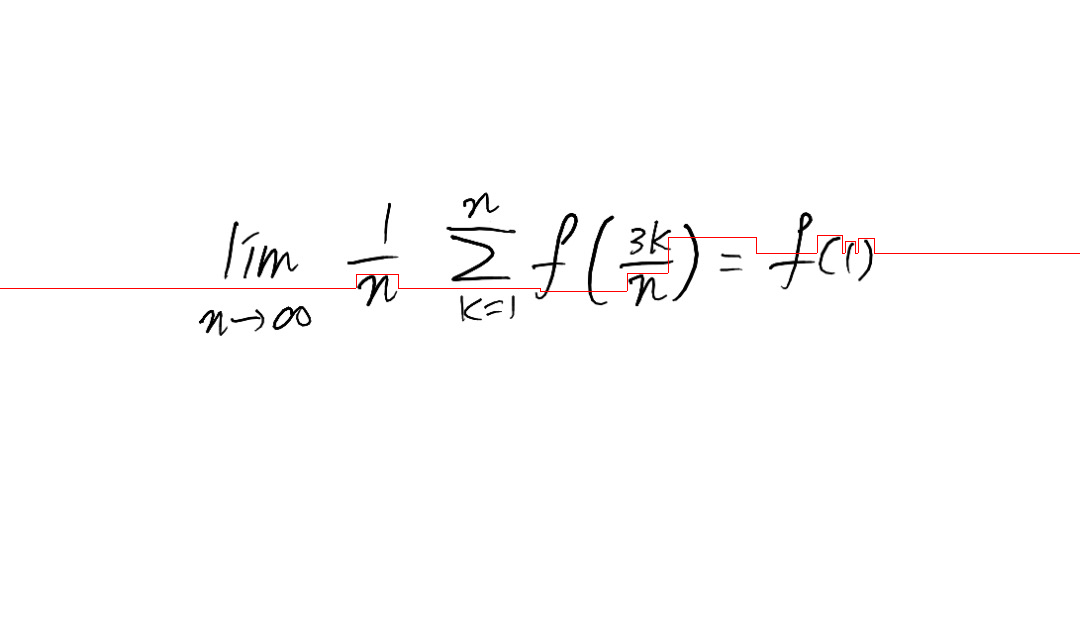 \lim_{n \to \infty} \frac{1}{n} \sum_{k=1}^{n} f\left(\frac{3k}{n}\right) = f(1)